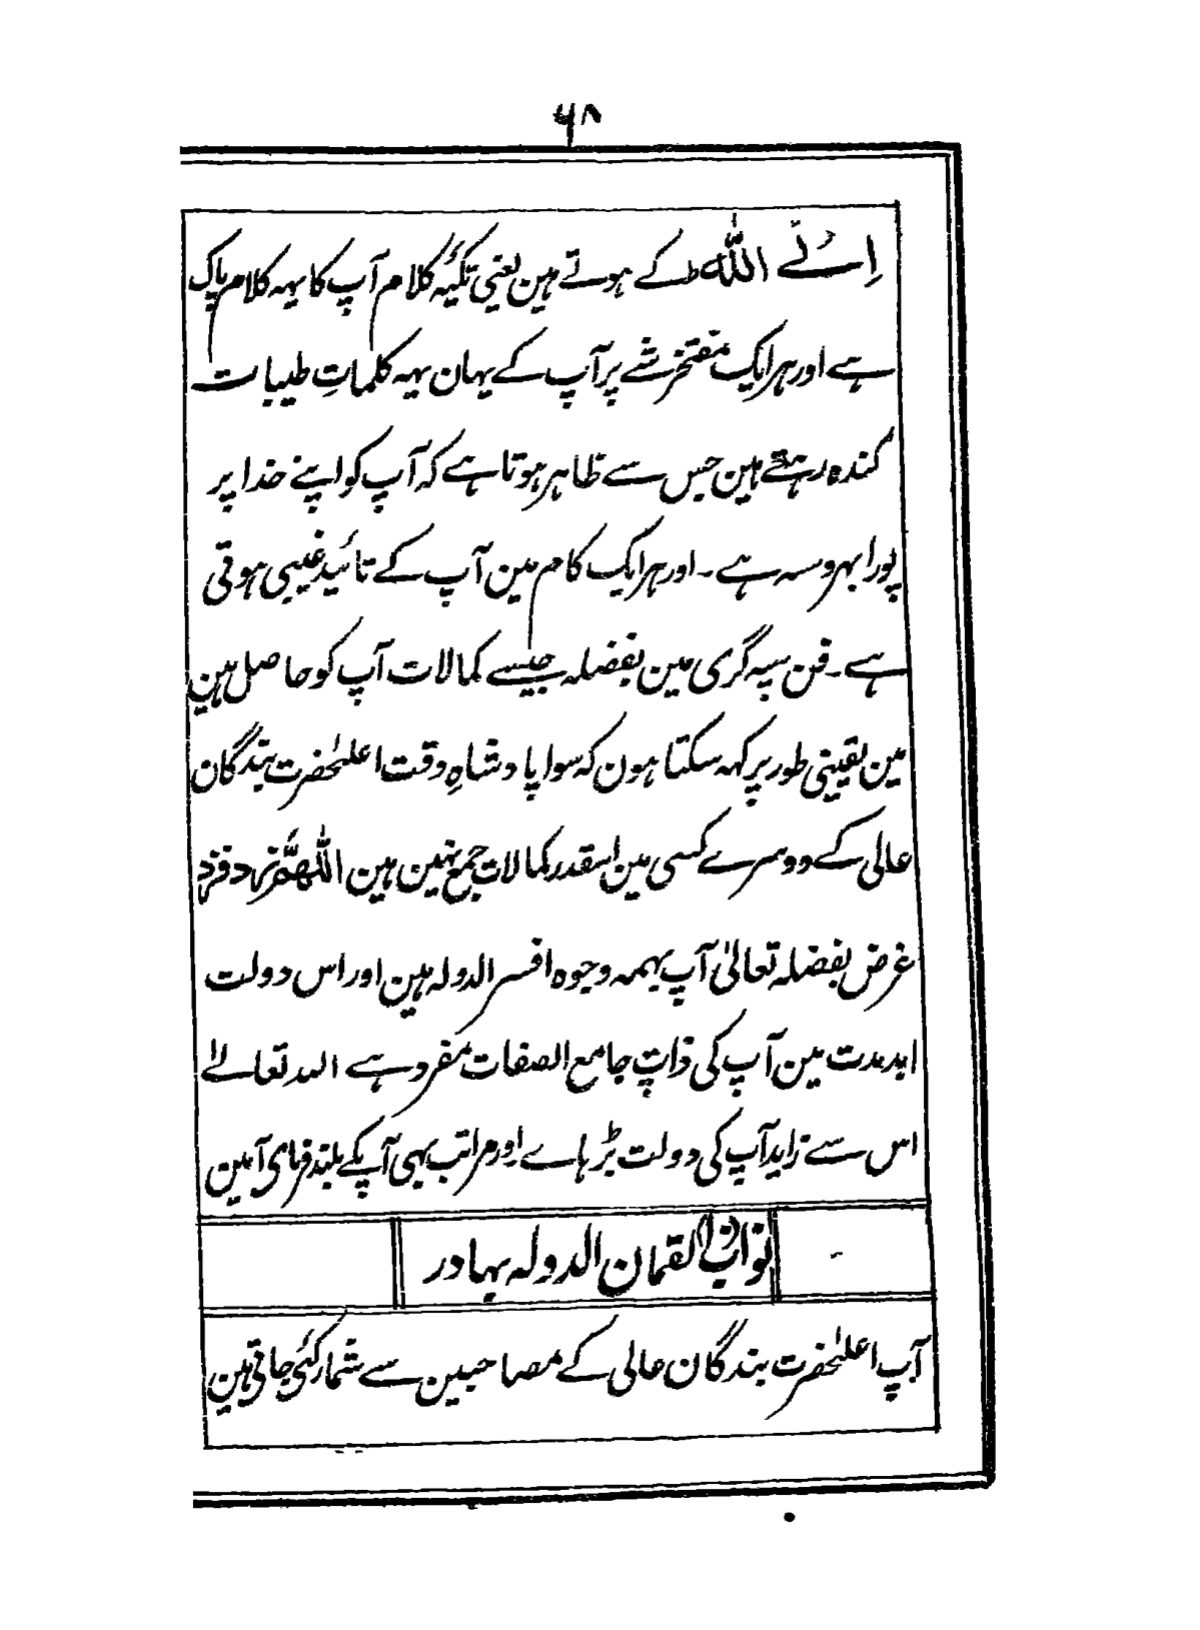 ۶۸
اِنْے اللّٰہ ط کے ہوتے ہین یعنی تکیۂ کلام آپ کا یہہ کلام پاک
ہے اور ہر ایک مفتخر شے پر آپ کے یہان یہہ کلماتِ طیبات
کندہ رہتے ہین جس سے ظاہر ہوتا ہے کہ آپ کو اپنے خدا پر
پورا بہروسہ ہے۔ اور ہر ایک کام مین آپ کے تائید غیبی ہوتی
ہے۔ فن سپہ گری مین بفضلہ جیسے کمالات آپ کو حاصل ہین
مین یقینی طور پر کہہ سکتا ہون کہ سوا پادشاہِ وقت اعلیٰحضرت بندگان
عالی کے دوسرے کسی مین اسقدر کمالات جمع نہین ہین اللّٰھُمَّ زد فزد
غرض بفضلہ تعالیٰ آپ بہمہ وجوہ افسر الدولہ ہین اور اس دولت
ابد مدت مین آپ کی ذاتِ جامع الصفات مفرد ہے اللہ تعالےٰ
اس سے زاید آپ کی دولت بڑہاے اور مراتب بہی آپکے بلند فرمای آمین
نواب لقمان الدولہ بہادر
آپ اعلیٰحضرت بندگان عالی کے مصاحبین سے شمار کئی جاتی ہین